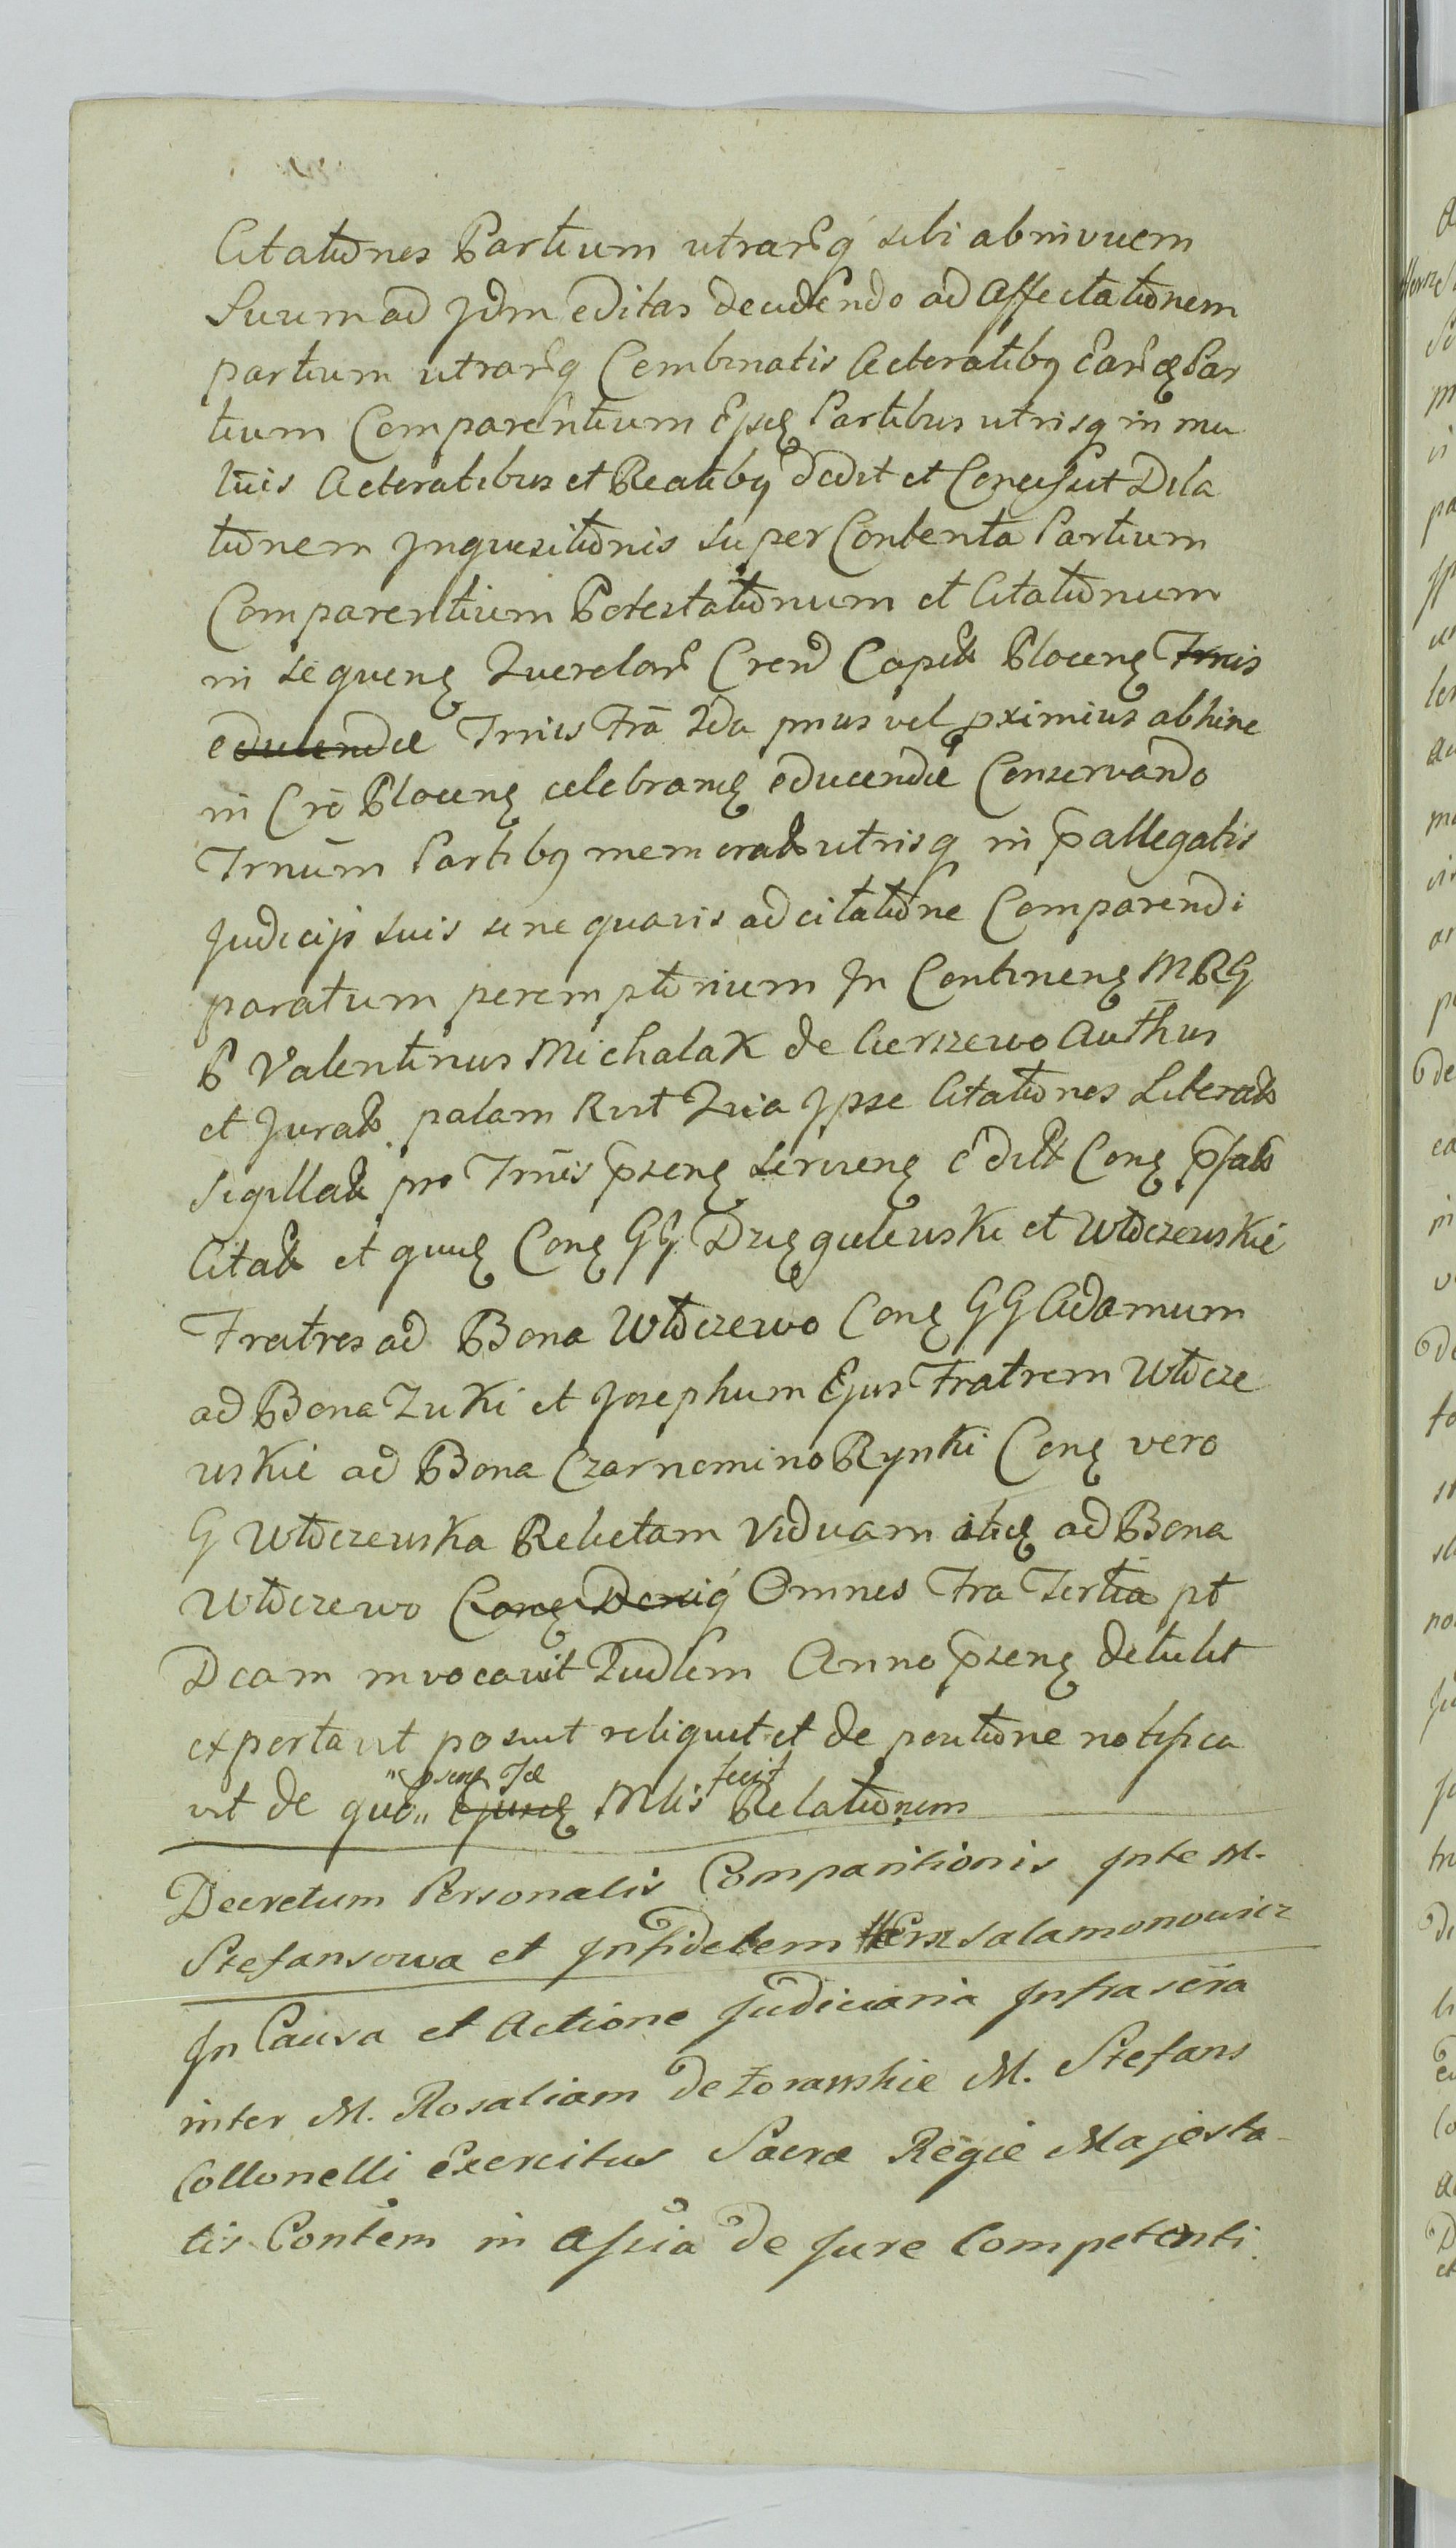 Citationes Partium utrarq̃ sibi abinvicem
Suum ad Jdm editas decidendo ad Affectationem
partium utrarq̃ Combinatis Actoratibq earq̃ Par
tium Comparentium Ejsq̃ Partibus utrisq in mu
tuis Actoratibus et Reatibq dedit et Concessit Dila
tionem Jnquisitionis super Contenta Partium
Comparentium Potestationum et Citationum
in sequenę Querelar Crend Capit Plocenę Trnis
educendæ Trnis Fra 2da prius vel pximius abhinc
in Cro Plocenę celebranę educendæ Conservando
Trnum Partibq memorat utrisq in pallegatis
Judicijs suis sine quavis adcitatione Comparendi
paratum peremptorium Jn Continenę MRG
P Valentinus Michalak de Cierszewo Authus
et Jurat palam Rvit Quia Jpse Citationes Literat
Sigillat pro Trnis psenę servienę
Citat et quuę Conę GG Dzięgielewski et Włoczewskie
Fratres ad Bona Włoczewo Conę GG Adamum
ad Bona Zuki et Josephum Ejus Fratrem Włocze
wskie ad Bona Czarnomino Rynki Conę vero
G Włoczewska Relictam Viduam itidę ad Bona
Włoczewo Conę Deniq Omnes Fra Tertia pt
Dcam invocavit Judlem Anno psenę detulit
exportavit posuit reliquit et de positione notifica
"psenę Jæ fecit
vit de quo" ejusdę Mlis Relationem
Decretum Personalis Comparitionis Jnte M.
Stefansowa et Jnfidelem Hersz Salamonowicz
Jn Causa et Actione Judiciaria Jnfra scra
inter M. Rosaliam de Łorawskie M. Stefans
Collonelli Exercitus Sacræ Regiæ Majesta-
tis Contem in Assia de Jure Competenti.